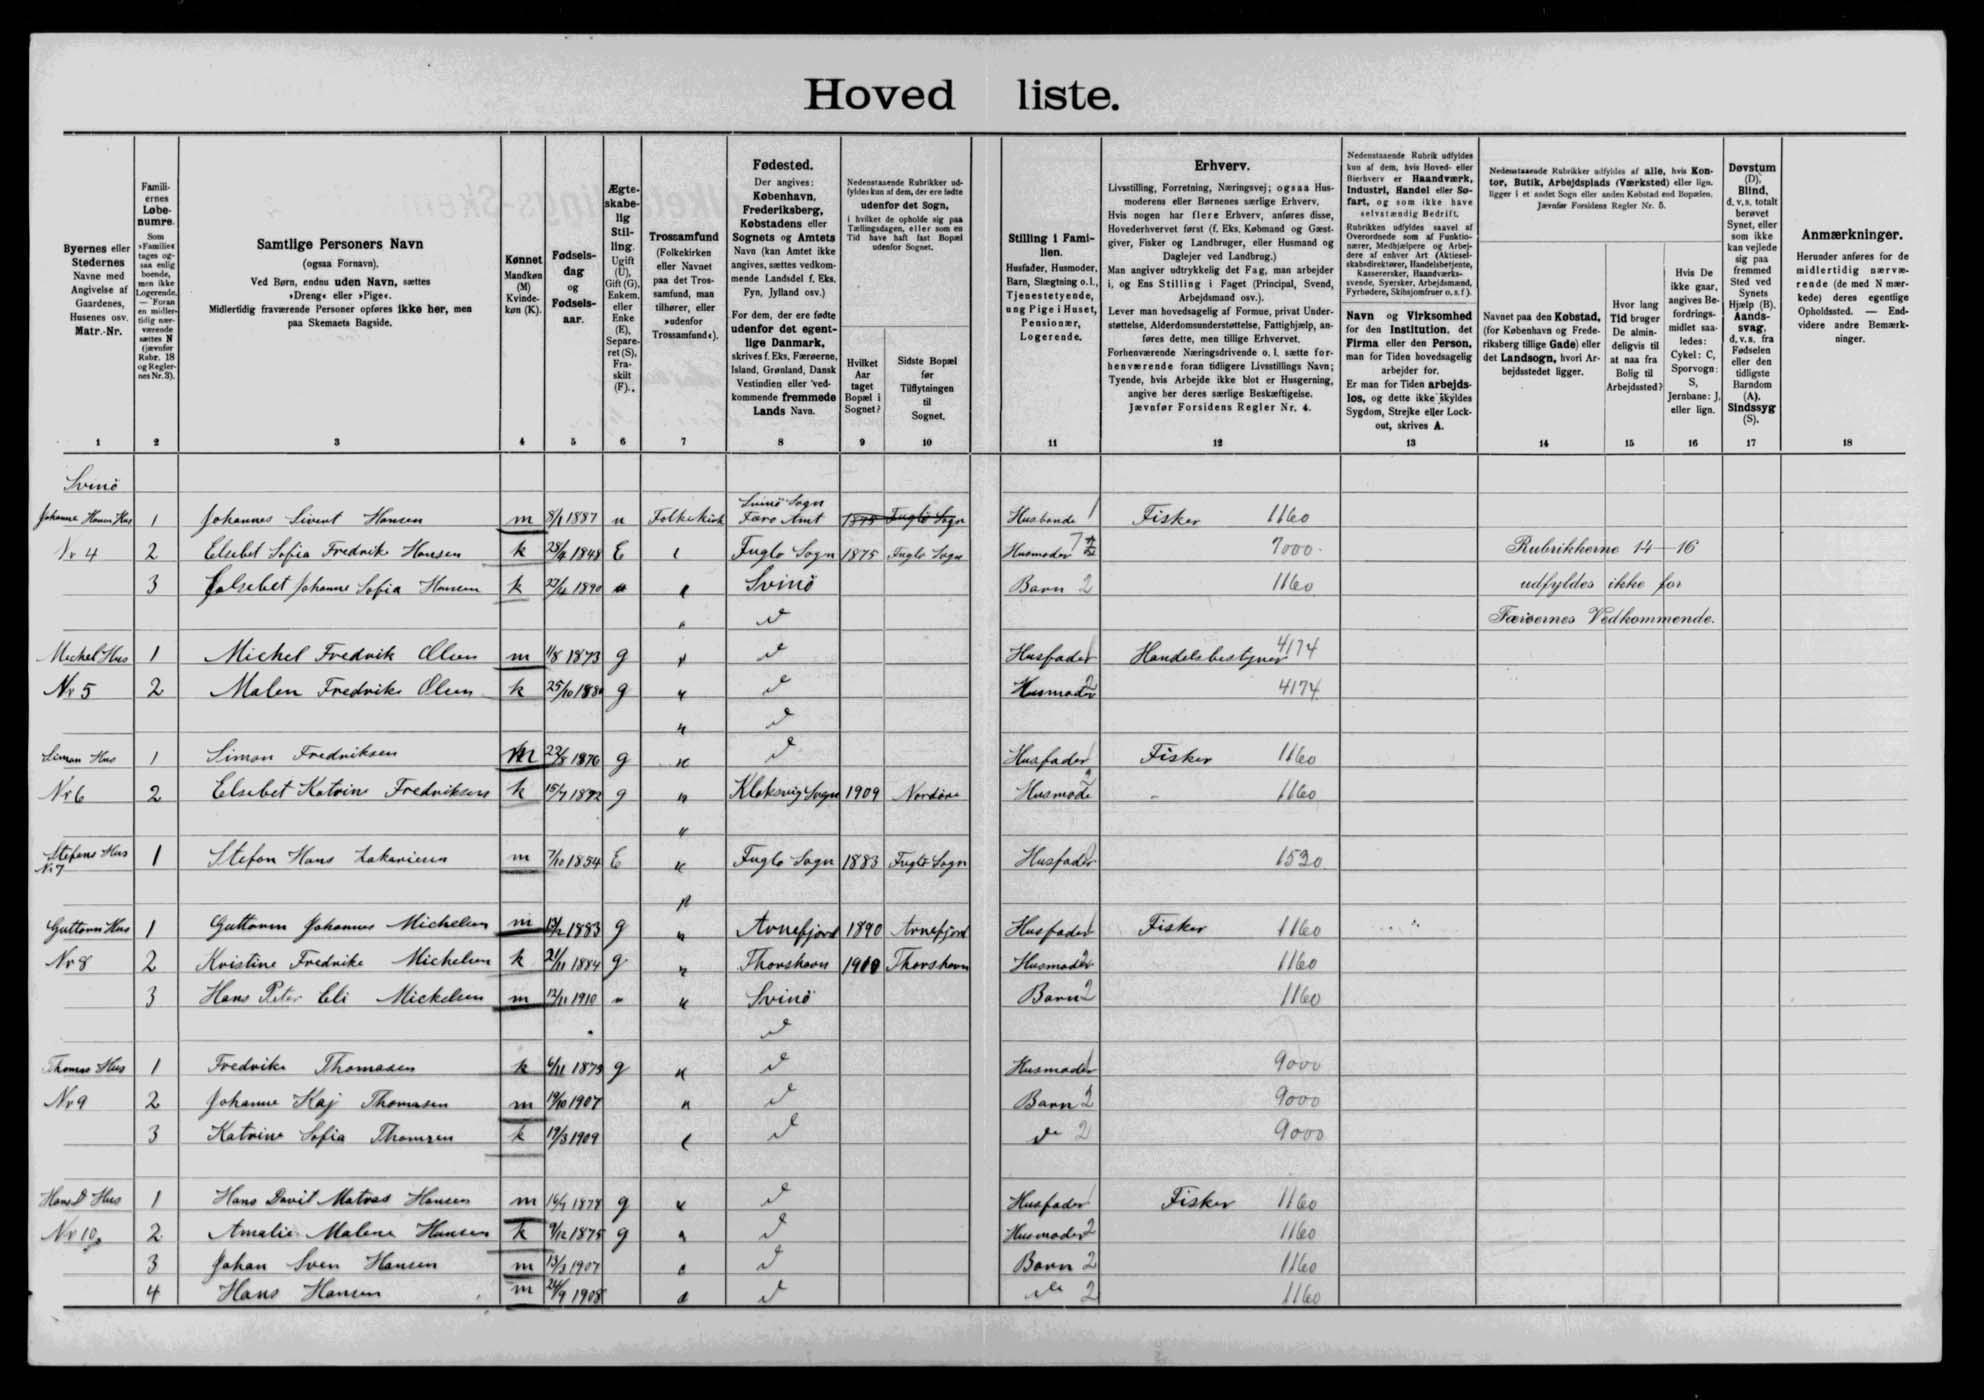 Hoved liste.
Byernes eller Stedernes Navne med Angivelse af Gaardenes, Husenes osv. Matr.-Nr.
Familiernes Løbenumre. Som »Familie« tages ogsaa enlig boende, men ikke Logerende. — Foran en midlertidig nærværende sættes N (jævnfør Rubr. 18 og Regler-nes Nr. 3).
Samtlige Personers Navn (ogsaa Fornavn). Ved Børn, endnu uden Navn, sættes »Dreng« eller »Pige«. Midlertidig fraværende Personer opføres ikke her, men paa Skemaets Bagside.
Kønnet Mandkøn (M) Kvindekøn (K).
Fødselsdag og Fødselsaar.
Ægteskabelig Stilling. Ugift (U), Gift (G), Enkem. eller Enke (E), Separeret (S), Fraskilt (F).
Trossamfund (Folkekirken eller Navnet paa det Trossamfund, man tilhører, eller »udenfor Trossamfund«).
Fødested. Der angives: København, Frederiksberg, Købstadens eller Sognets og Amtets Navn (kan Amtet ikke angives, sættes vedkommende Landsdel f. Eks. Fyn, Jylland osv.) For dem, der ere fødte udenfor det egentlige Danmark, skrives f. Eks. Færøerne, Island, Grønland, Dansk Vestindien eller vedkommende fremmede Lands Navn.
Nedenstaaende Rubrikker udfyldes kun af dem, der ere fødte udenfor det Sogn, i hvilket de opholde sig paa Tællingsdagen, eller som en Tid have haft fast Bopæl udenfor Sognet.
Hvilket Aar taget Bopæl i Sognet?
Sidste Bopæl før Tilflytningen til Sognet.
Stilling i Familien. Husfader, Husmoder, Barn, Slægtning o.l., Tjenestetyende, ung Pige i Huset, Pensionær, Logerende.
Erhverv. Livsstilling, Forretning, Næringsvej; ogsaa Husmoderens eller Børnenes særlige Erhverv. Hvis nogen har flere Erhverv, anføres disse, Hovederhvervet først (f. Eks. Købmand og Gæstgiver, Fisker og Landbruger, eller Husmand og Daglejer ved Landbrug.) Man angiver udtrykkelig det Fag, man arbejder i, og Ens Stilling i Faget (Principal, Svend, Arbejdsmand osv.). Lever man hovedsagelig af Formue, privat Understøttelse, Alderdomsunderstøttelse, Fattighjælp, anføres dette, men tillige Erhvervet. Forhenværende Næringsdrivende o. l. sætte forhenværende foran tidligere Livsstillings Navn; Tyende, hvis Arbejde ikke blot er Husgerning, angive her deres særlige Beskæftigelse. Jævnfør Forsidens Regler Nr. 4.
Nedenstaaende Rubrik udfyldes kun af dem, hvis Hoved- eller Bierhverv er Haandværk, Industri, Handel eller Søfart, og som ikke have selvstændig Bedrift. Rubrikken udfyldes saavel af Overordnede som af Funktionærer, Medhjælpere og Arbejdere af enhver Art (Aktieselskabsdirektører, Handelsbetjente, Kasserersker, Haandværkssvende, Syersker, Arbejdsmænd, Fyrbødere, Skibsjomfruer o. s. f.). Navn og Virksomhed for den Institution, det Firma eller den Person, man for Tiden hovedsagelig arbejder for. Er man for Tiden arbejdsløs, og dette ikke skyldes Sygdom, Strejke eller Lockout, skrives A.
Nedenstaaende Rubrikker udfyldes af alle, hvis Kontor, Butik, Arbejdsplads (Værksted) eller lign. ligger i et andet Sogn eller anden Købstad end Bopælen. Jævnfør Forsidens Regler Nr. 5.
Navnet paa den Købstad, (for København og Frederiksberg tillige Gade) eller det Landsogn, hvori Arbejdsstedet ligger.
Hvor lang Tid bruger De almindeligvis til at naa fra Bolig til Arbejdssted?
Hvis De ikke gaar, angives Befordringsmidlet saaledes: Cykel: C, Sporvogn: S, Jernbane: J, eller lign.
Døvstum (D), Blind, d. v. s. totalt berøvet Synet, eller som ikke kan vejlede sig paa fremmed Sted ved Synets Hjælp (B). Aandssvag, d. v. s. fra Fødselen eller den tidligste Barndom (A). Sindssyg (S).
Anmærkninger. Heruder anføres for de midlertidig nærværende (de med N mærkede) deres egentlige Opholdssted. — Endvidere andre Bemærkninger.
1 2 3 4 5 6 7 8 9 10 11 12 13 14 15 16 17 18
Svinö
Svinö Sogn
Johanne Hansens Hus 1 Johannes Sivert Hansen m 8/1 1887 u Folkekirk Færo Amt 1875 Fuglö Sogn Husbonde 1 Fisker 1160
Nr 4 2 Elsebet Sofia Fredrike Hansen k 28/9 1848 E Fuglo Sogn 1875 Fuglo Sogn Husmoder 7000 Rubrikkerne 14-16
3 Elsebet Johanne Sofia Hansen k 27/12 1890 Svinö Barn 2 1160 udfyldes ikke for
Færöernes Vedkommende.
Michel Hus 1 Michel Fredrik Olsen m 1/8 1873 g Husfader 1 Handelsbestyrer 4174
Nr 5 2 Malen Fredrike Olsen k 25/10 1880 g Husmoder 2 4174
Simon Hus 1 Simon Fredriksen m 22/8 1876 g Husfader 1 Fisker 1160
Nr 6 2 Elsebet Katrine Fredriksen k 15/7 1892 g Kloksvig Sogn 1909 Nordöre Husmode 2 1160
Stefans Hus Nr 7 1 Stefan Hans Zakariesen m 7/10 1854 E Fuglo Sogn 1883 Fuglö Sogn Husfader 1520
Guttorm Hus 1 Guttorm Johannes Michelsen m 1883 g Arnefjord 1890 Arnefjord Husfader 1 Fisker 1160
Nr 8 2 Kristine Fredrike Michelsen k 21/11 1884 g Thorshavn 1910 Thorshavn Husmoder 2 1160
3 Hans Peter Eli Mickelsen m 12/11 1910 Svinö Barn 2 1160
Thomas Hus 1 Fredrike Thomasen k 6/11 1873 g Husmoder 1 9000
Nr 9 2 Johanne Kaj Thomasen m 19/10 1907 Barn 2 9000
3 Katrine Sofia Thomsen k 19/3 1909 do 2 9000
Hans D Hus 1 Hans Davit Matras Hansen m 16/7 1878 g Husfader 1 Fisker 1160
Nr 10 2 Amalie Malene Hansen k 9/12 1875 g Husmoder 2 1160
3 Johan Sven Hansen m 13/3 1907 Barn 2 1160
4 Hans Hansen m 24/9 1908 do 2 1160